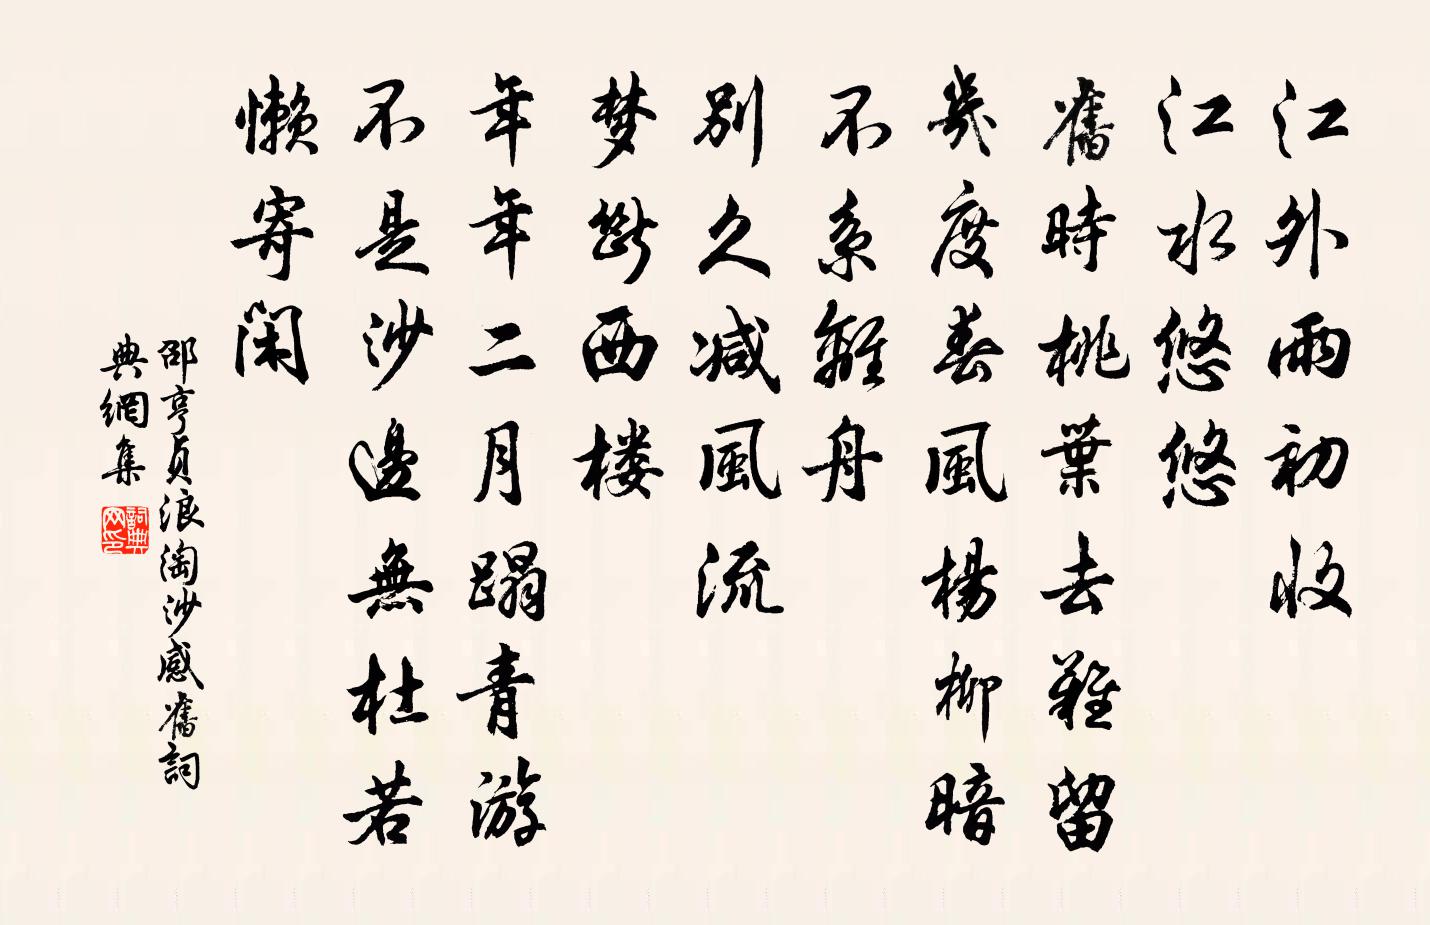 江外雨初收
江水悠悠
舊時桃葉去難留
幾度春風楊柳暗
不系離舟
別久减風流
梦斷西楼
年年二月蹋青游
不是沙邊無杜若
懶寄閑
邵亨貞浪淘沙感舊詞
典網集
詞典网印